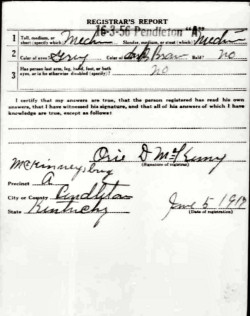 REGISTRAR'S REPORT
16-3-56 Pendleton "A"
1 Tall, medium, or short (specify which)? Medm Slender, medium, or stout (which)? Medm
2 Color of eyes? Grey Color of hair? Brow Bald? No
3 Has person lost arm, leg, hand, foot, or both eyes, or is he otherwise disabled (specify)? no
I certify that my answers are true, that the person registered has read his own answers, that I have witnessed his signature, and that all of his answers of which I have knowledge are true, except as follows:
Orie D McKinny
(Signature of registrar)
McKinneysburg
Precinct A
City or County Pendleton
State Kentucky
June 5 1917
(Date of registration)